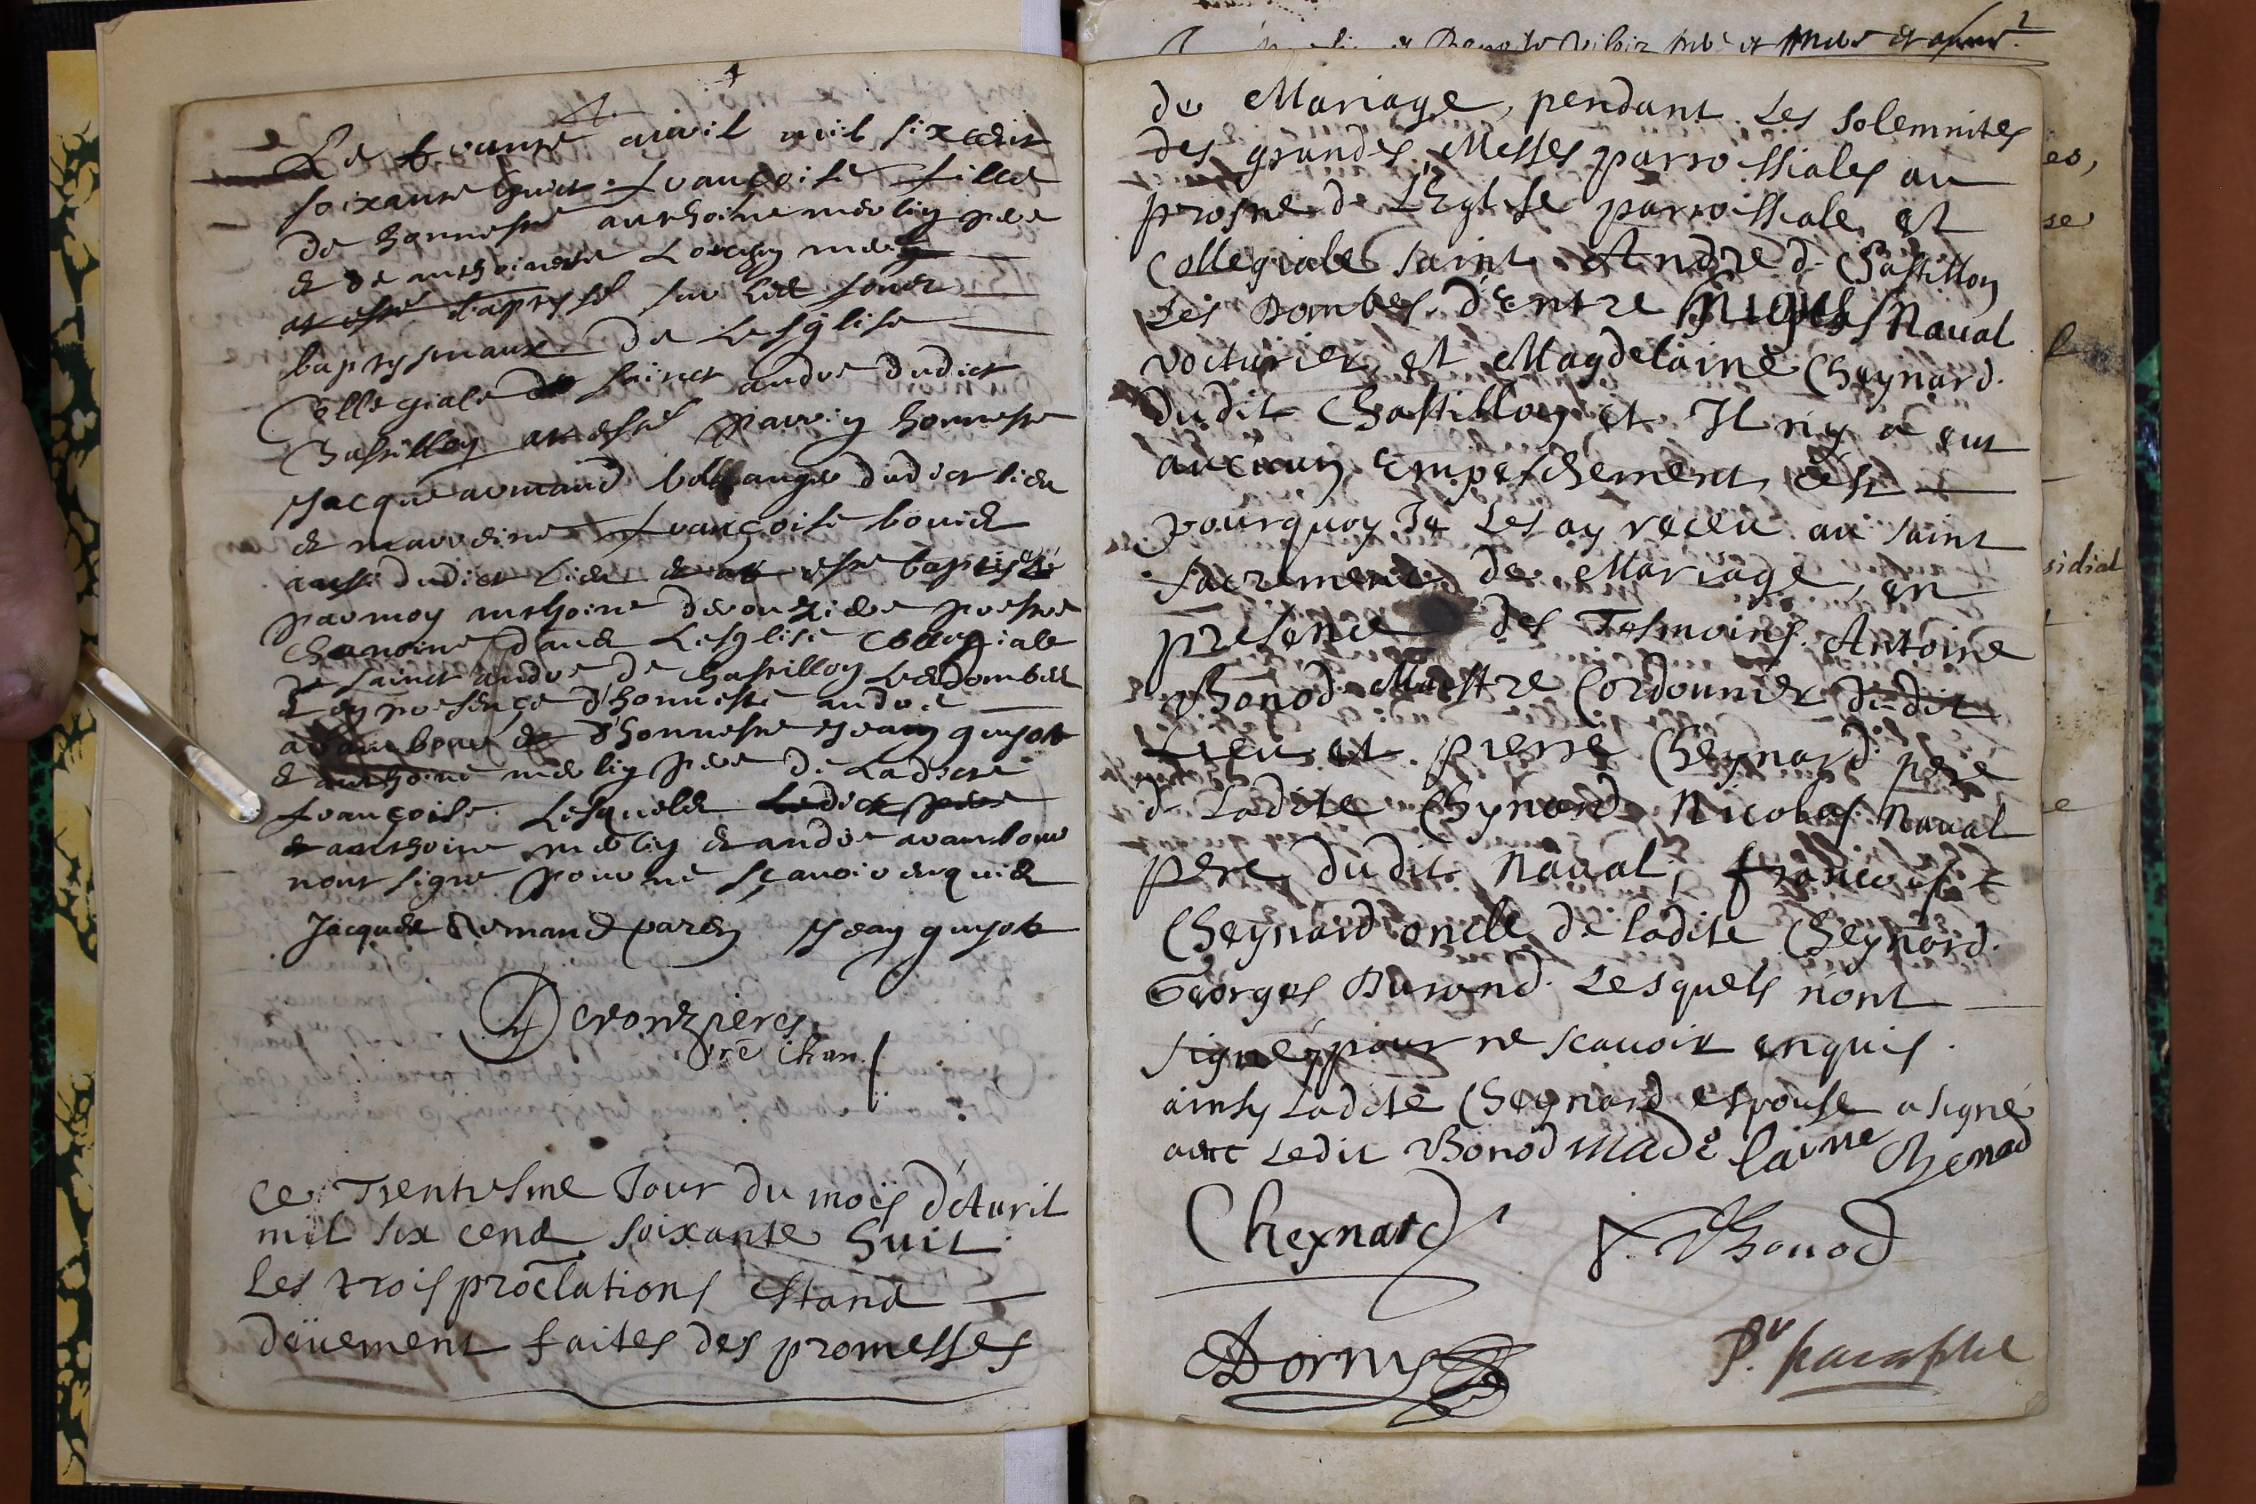 Le trante avvil mil six cent
soixante huict francoise fille
de honneste anthoine merlin pere
& de anthoinette mere
at esté baptisé sur les fonds
baptismaux de Lesglise
Collegiale de sainct andre dudict
Chastillon at esté parrin honneste
Jacque armand bollangé dudict lieu
& marrеine francoise bouiet
aussi dudict Lieu & at esté baptisé
par moy anthoine deronzieres prestre
chanoine dans Lesglise Collegiale
de sainct andre de Chastillon Les dombes
& en presence d'honneste andre
& d'honneste Jean guyot
& anthoine merlin pere de Ladicte
francoise Lesquels Ledict pere
& anthoine merlin & andre
nont signe pour ne sçavoir enquis
Jacques Armand parin Jean guyot
Deronzieres
pre chan.
Ce Trentiesme Jour du mois d'Avril
mil six cent soixante huit
Les trois proclations Estant
düement faites des promesses
de Mariage, pendant Les solemnites
des grandes Messes parrossiales au
prosne de L'Eglise parroissiale et
Collegiale saint Andre d. Chastillon
Les Dombes d'Entre Naual
voiturier et Magdelaine Cheynard.
dudit Chastillon et Il n'y a eut
aucun Empeschement, c'est
pourquoy Je Les ay receu au saint
sacrement de Mariage, en
presence des Tesmoins Antoine
Bonod Maistre Cordounier dudit
Lieu et pierre Cheynard pere
d. Ladite Chynard Nicolas Naual
pere dudit Naual, francois
Cheynard oncle de ladite Cheynard.
Georges Durand. Lesquels n'ont
signés pour ne scauoir enquis.
ainsy Ladite Cheynard espouse a signé
auec Ledit Bonod madelaine Chenad
Cheynard Bonod
Dornys Pr. paraphe